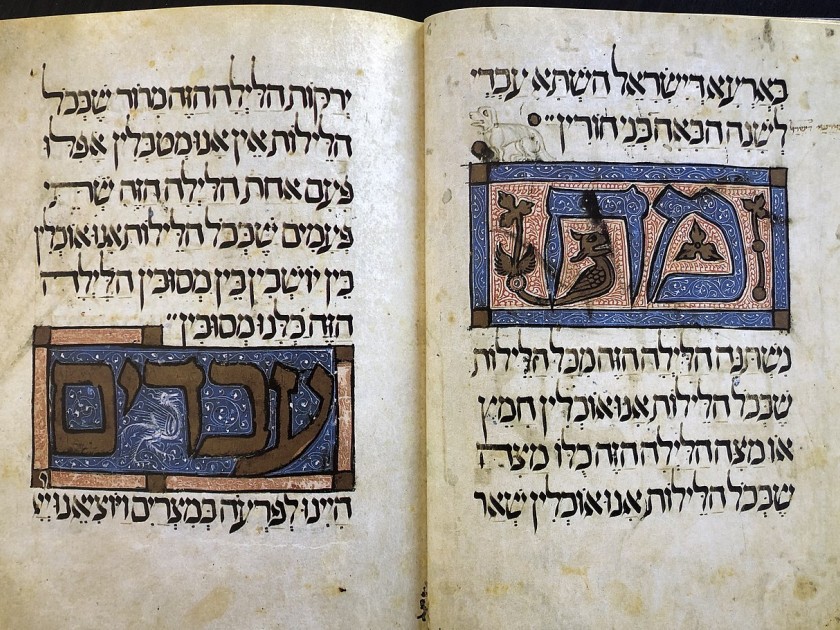 בארעא דישראל השתא עבדי
לשנה הבאה בני חורין״
מה
נשתנה הלילה הזה מכל הלילות
שבכל הלילות אנו אוכלין חמץ
או מצה הלילה הזה כלו מצה
שבכל הלילות אנו אוכלין שאר
ירקות הלילה הזה מרור שבכל
הלילות אין אנו מטבלין אפלו
פעם אחת הלילה הזה שתי
פעמים שבכל הלילות אנו אוכלין
בין יושבין בין מסובין הלילה
הזה כלנו מסובין״
עבדים
היינו לפרעה במצרים ויוציאנו